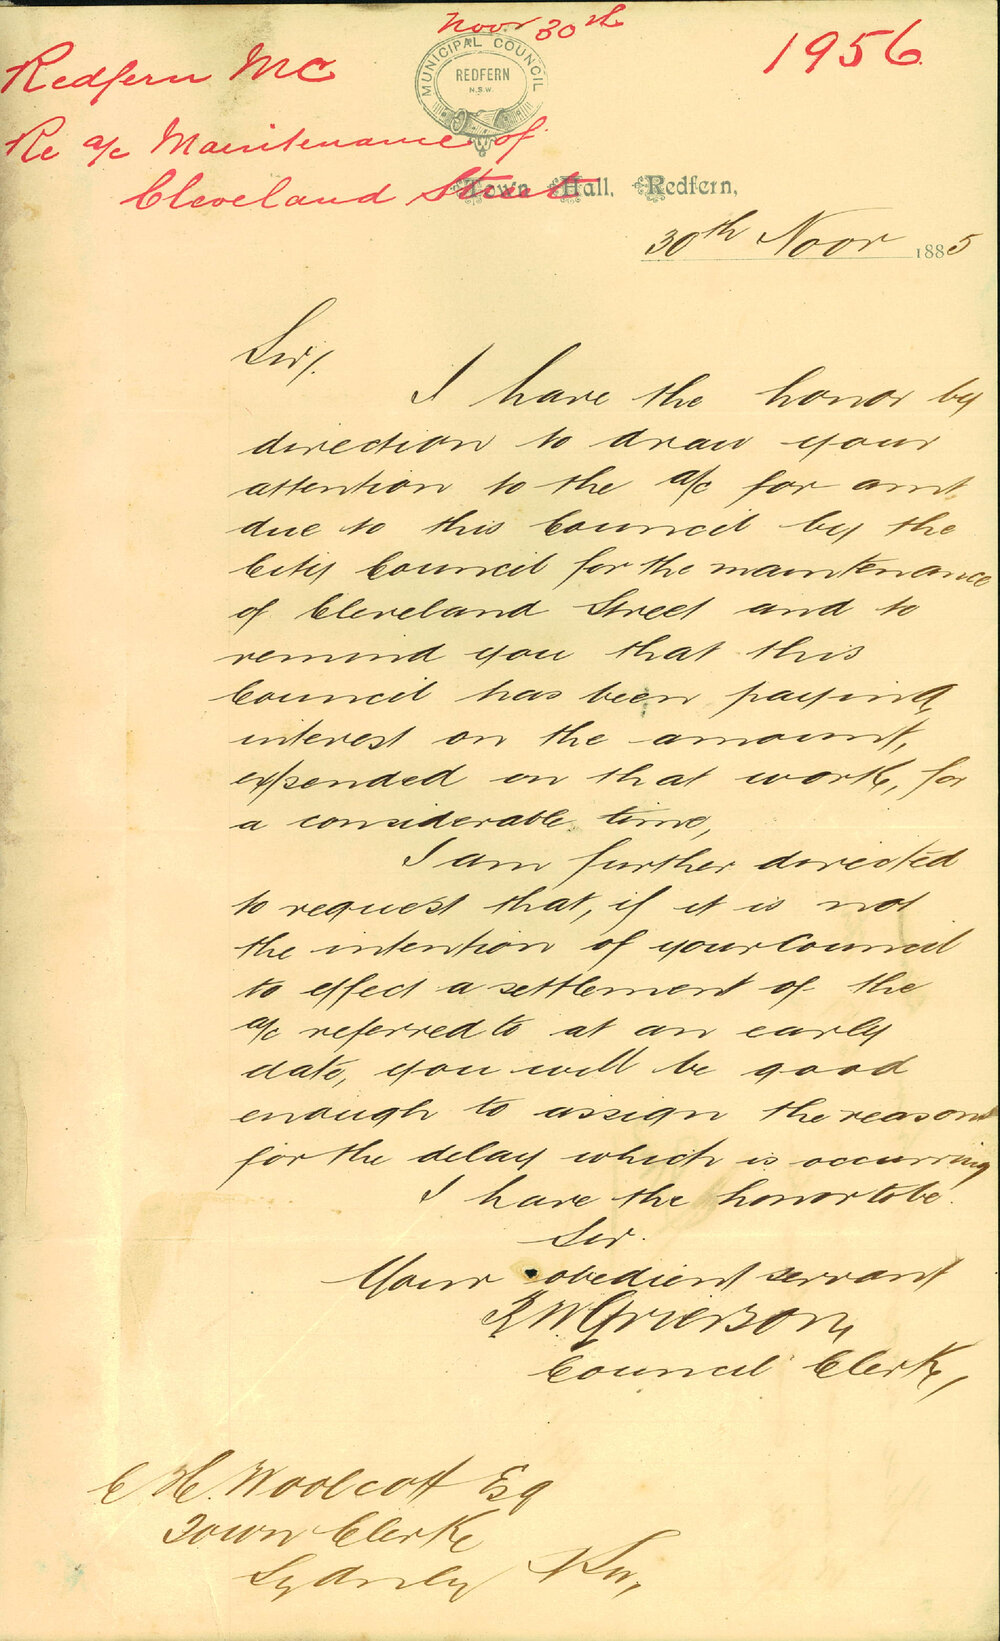 Novr 30th
1956
Redfern MC
Re a/c Maintenance of
Cleveland Street
MUNICIPAL COUNCIL
REDFERN
N.S.W.
Town Hall, Redfern,
30th Novr 1885
Sir,
I have the honor by
direction to draw your
attention to the a/c for amt
due to this Council by the
City Council for the maintenance
of Cleveland Street and to
remind you that this
Council has been paying
interest on the amount,
expended on that work, for
a considerable time,
I am further directed
to request that, if it is not
the intention of your Council
to effect a settlement of the
a/c referred to at an early
date, you will be good
enough to assign the reason
for the delay which is occurring
I have the honor to be
Sir.
Your obedient servant
Grierson,
Council Clerk,
C H. Woolcott Esq
Town Clerk
Sydney